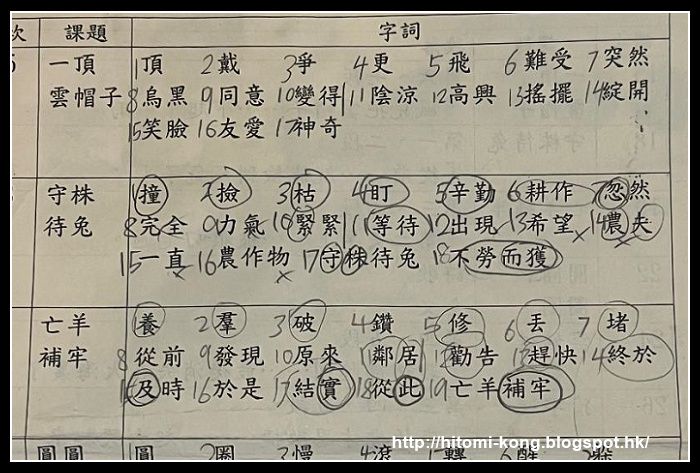 次 課題 字詞
一頂 1頂 2戴 3爭 4更 5飛 6難受 7突然
雲帽子 8烏黑 9同意 10變得 11陰涼 12高興 13搖擺 14綻開
15笑臉 16友愛 17神奇
守株 1撞 2撿 3枯 4盯 5辛勤 6耕作 7忽然
待兔 8完全 9力氣 10緊緊 11等待 12出現 13希望 14農夫
15一直 16農作物 17守株待兔 18不勞而獲
亡羊 1養 2羣 3破 4鑽 5修 6丟 7堵
補牢 8從前 9發現 10原來 11鄰居 12勸告 13趕快 14終於
15及時 16於是 17結實 18從此 19亡羊補牢
http://hitomi-kong.blogspot.hk/
圓圓 1圓 2圈 3慢 4滾